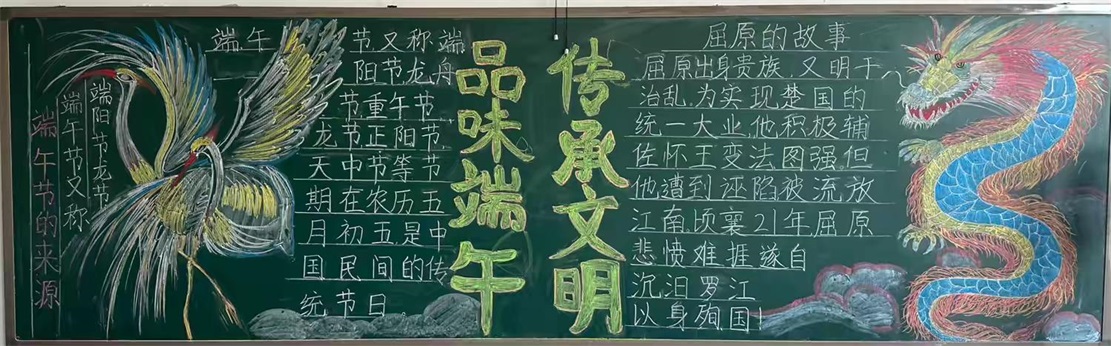 端午节的来源
端午节又称
端阳节龙节
端午 节又称端
阳节龙舟
节重午节
龙节正阳节
天中节等节
期在农历五
月初五是中
国民间的传
统节日。
品味端午
传承文明
屈原的故事
屈原出身贵族,又明于
治乱,为实现楚国的
统一大业,他积极辅
佐怀王变法图强但
他遭到诬陷被流放
江南顷襄21年屈原
悲愤难捱遂自
沉汨罗江
以身殉国!